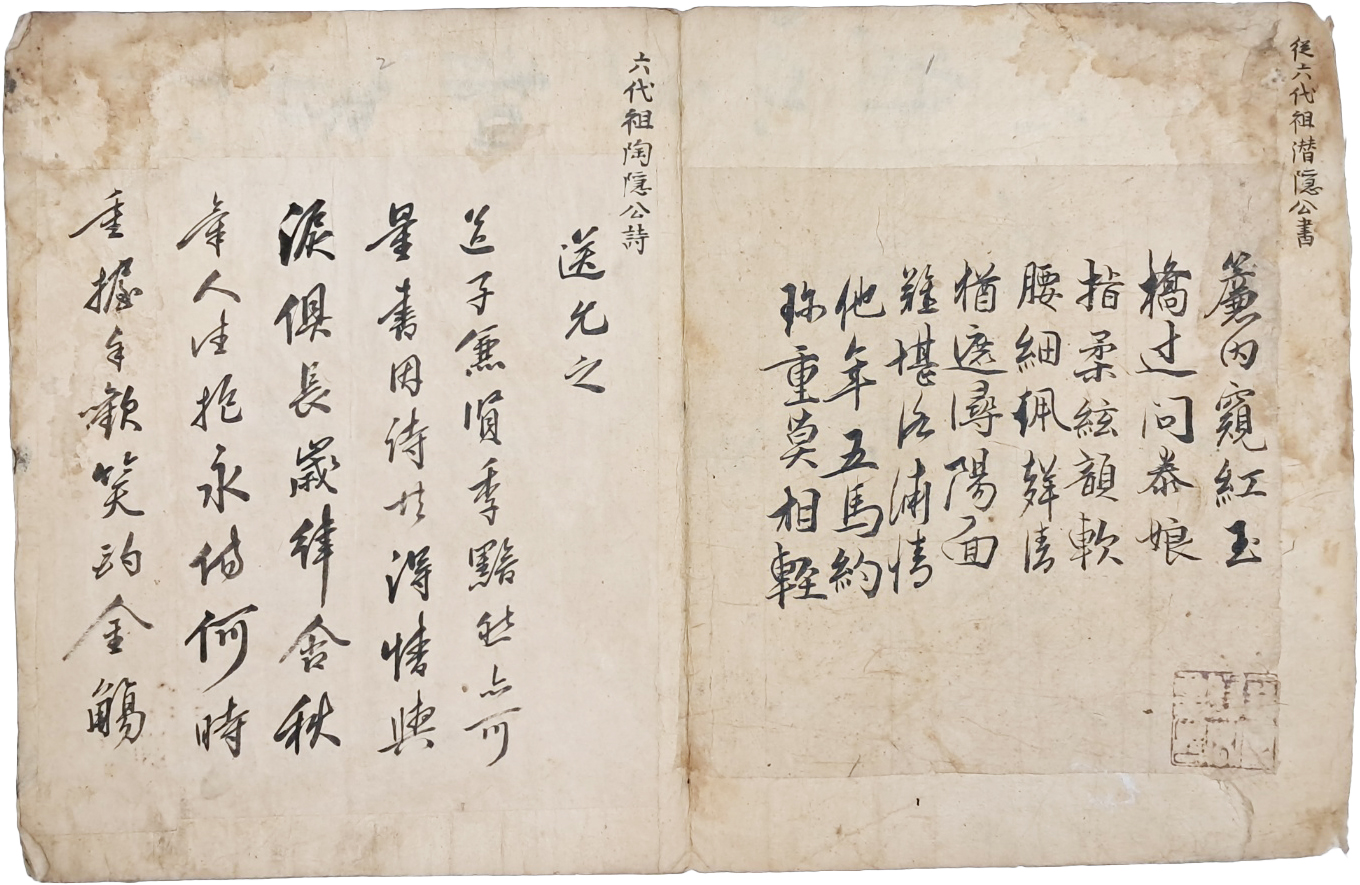 1
從六代祖潛隱公書
簾内窺紅玉
橋过问泰娘
指柔絃韻軟
腰細珮聲清
猶遮潯陽面
難堪洛浦情
他年五馬約
珍重莫相輕
2
六代祖陶隱公詩
送允之
送子兼賢季黯然亦可
量書因詩共得情與
淚俱長歲律含秋
人生抱永傷何時
重握手歡笑酌金觴